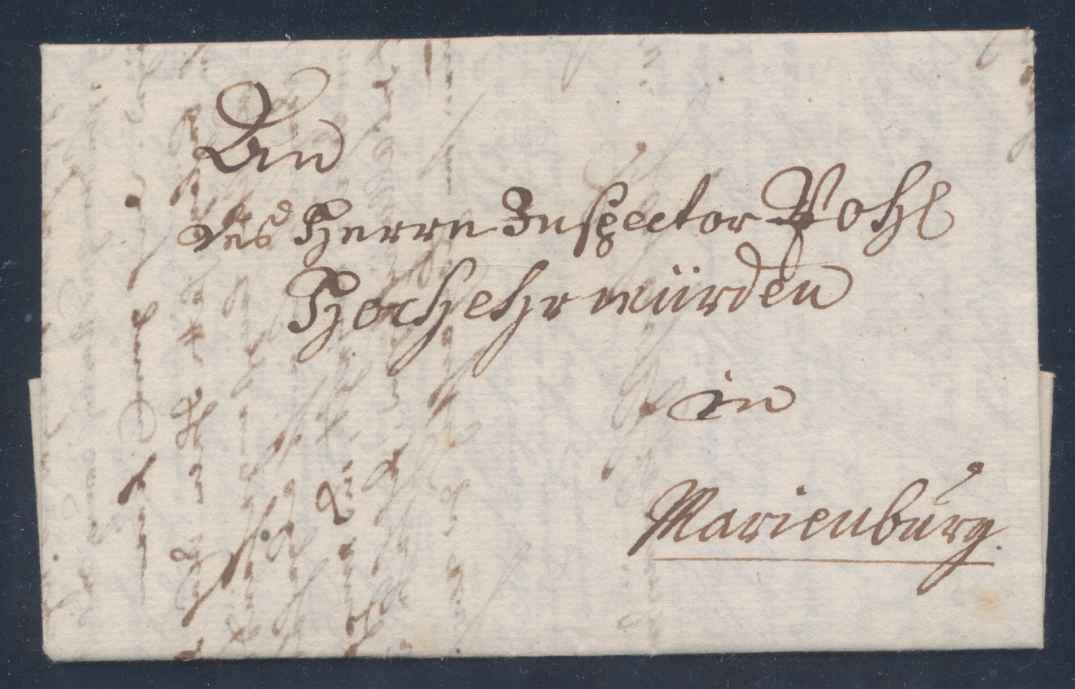 An
des Herrn Inspector Pohl
Hochehrwürden
in
Marienburg.